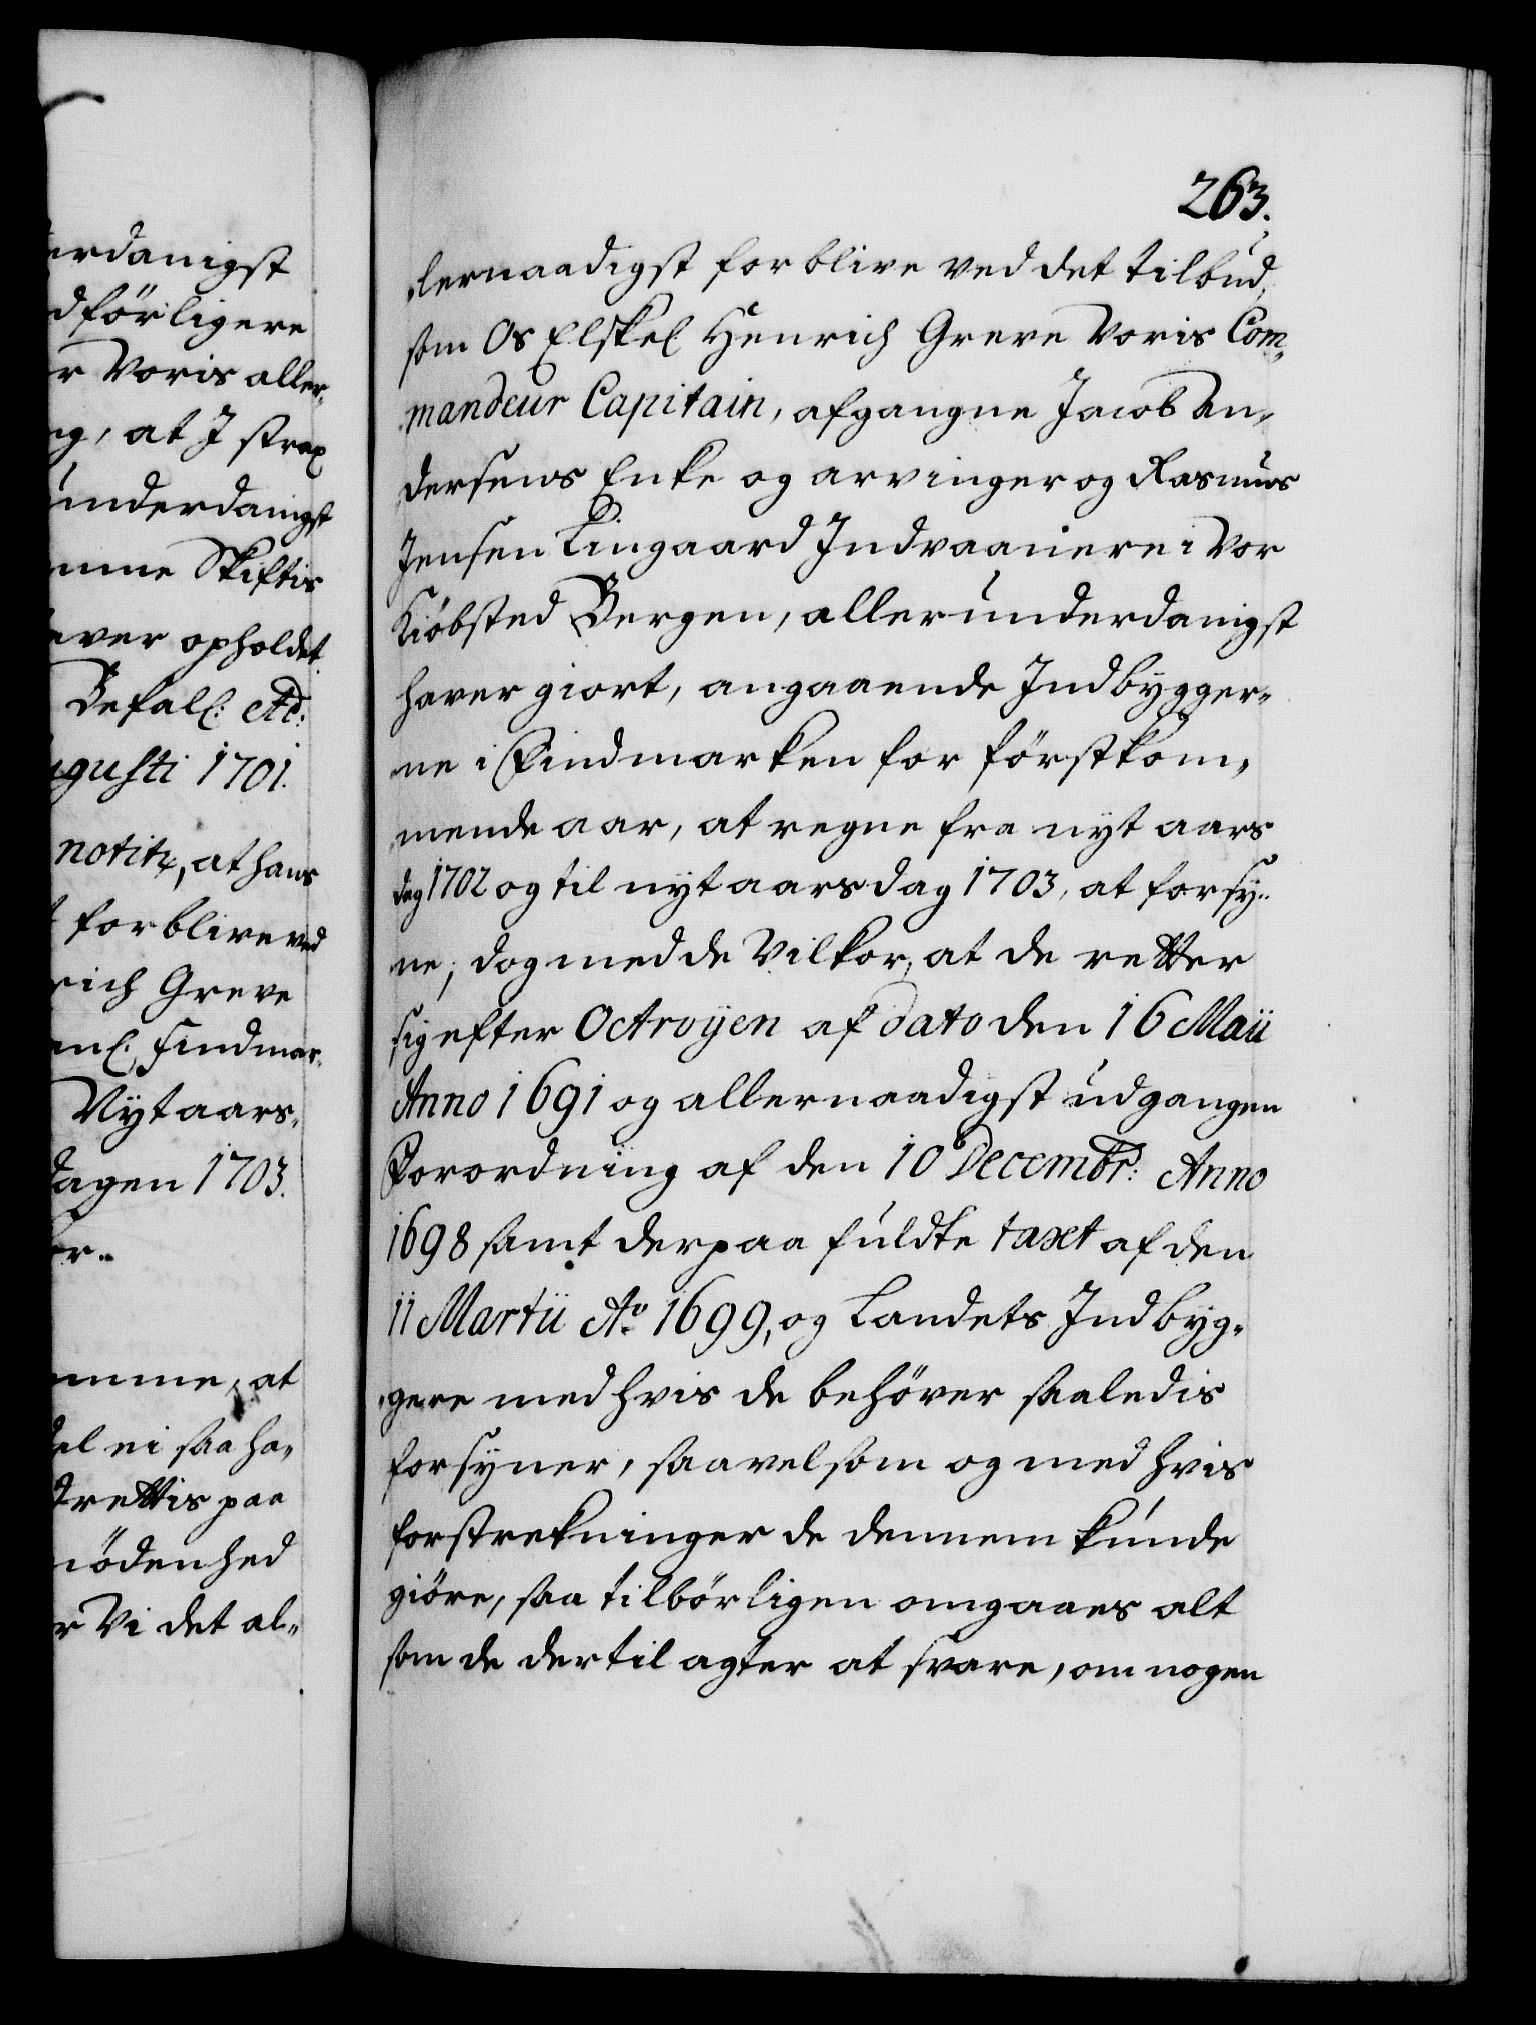 erdanigst
dförligere
r Voris aller,
ng, at J strax
underdanigst
mme Skiftis
aver opholdet
Befal: Ad:
gusti 1701.
notitz, at hans
forblive ved
rich Greve
enl. Findmar-
Nyt aars,
dagen 1703.
er..
mme, at
del ei saa ha,
drettis paa
nödenhed
r Vi det al,
263.
lernaadigst forblive ved det tilbud,
som Os Elskel Henrich Greve Voris Com,
mandeur Capitain, afgangne Jacob An,
dersens Enke og arvinger og Rasmus
Jensen Lingaard Indvaanere i Vor
Kiöbsted Bergen, allerunderdanigst
haver giort, angaaende Indbygger,
ne i Findmarken for förstkom,
mende aar, at regne fra nyt aars
dag 1702 og til nyt aars dag 1703, at forsy,
ne; dog med de Vilkor, at de retter
sig efter Octroyen af dato den 16 Maii
Anno 1691 og allernaadigst udgangen
Forordning af den 10 Decembr: Anno
1698 samt derpaa fuldte taxt af den
11 Martii Ao 1699, og Landets Indbyg,
gere med hvis de behöver saaledis
forsyner, saavelsom og med hvis
forstrekninger de dennem kunde
giöre, saa tilbörligen omgaaes alt
som de dertil agter at svare, om nogen